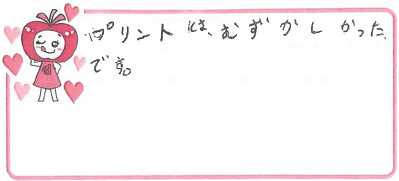 プリントは、むずかしかった
です。